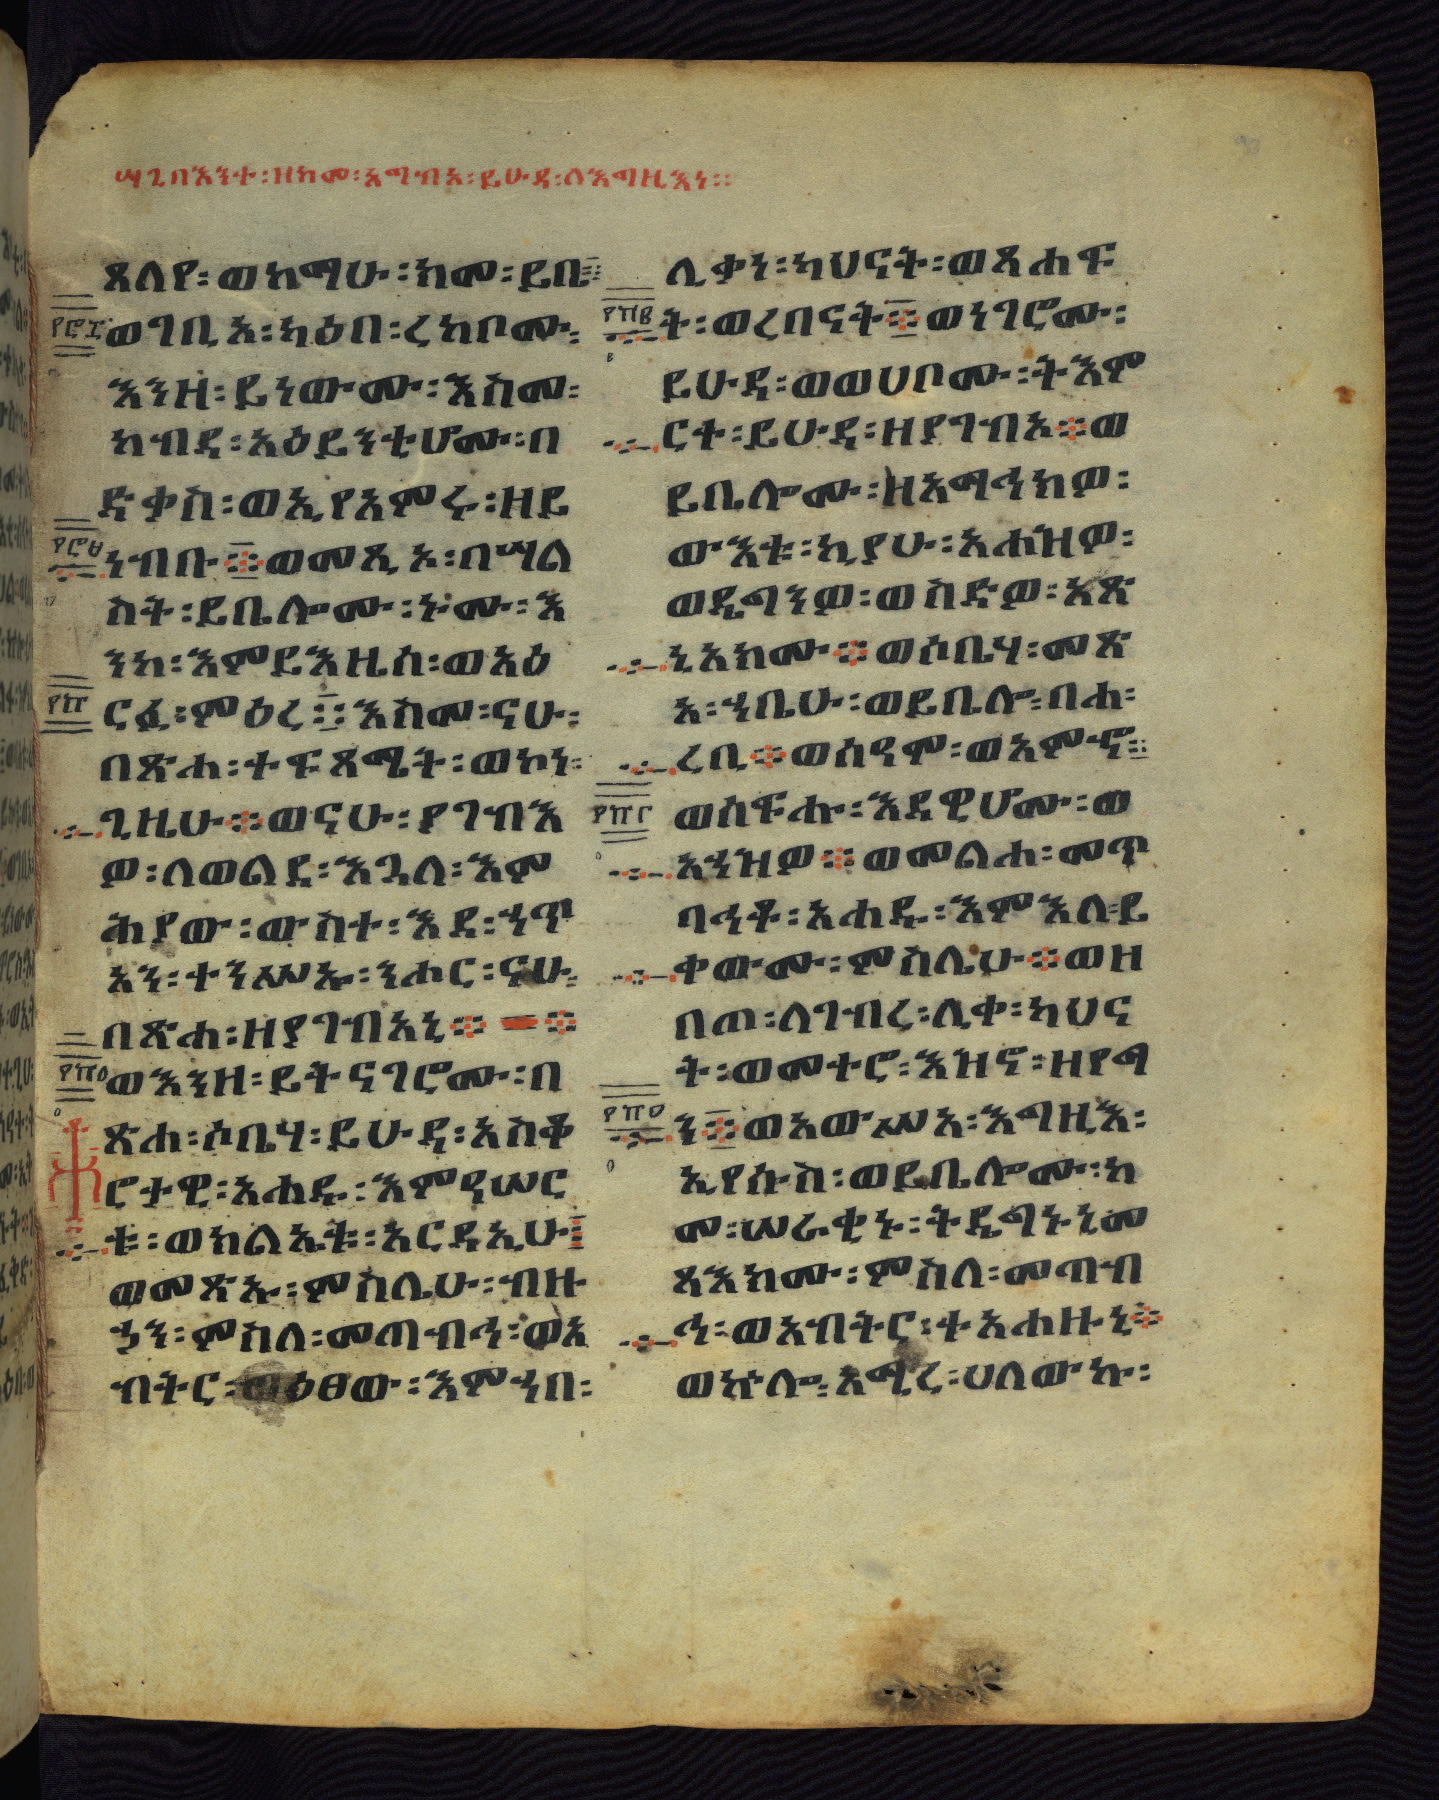 ፵፯በእንተ፡ዘከመ፡አግብአ፡ይሁዳ፡ለእግዚእነ፡፡
ጸለየ፡ወከማሁ፡ከመ፡ይቤ፡
ወገቢአ፡ካዕበ፡ረከቦሙ፡
እንዘ፡ይነውሙ፡እስመ፡
ከብዳ፡አዕይንቲሆሙ፡በ
ድቃስ፡ወኢየአምሩ፡ዘይ
ነብቡ፨ወመጺኦ፡በሣል
ስት፡ይቤሎሙ፡ኑሙ፡እ
ንከ፡እምይእዜሰ፡ወአዕ
ርፉ፡ምዕረ፡፡እስመ፡ናሁ፡
በጽሐ፡ተፍጻሜት፡ወኮነ፡
ጊዜሁ፨ወናሁ፡ያገብእ
ዎ፡ለወልደ፡እጓለ፡እም
ሕያው፡ውስተ፡እደ፡ኃጥ
አን፡ተንሥኡ፡ንሖር፡ናሁ፡
በጽሐ፡ዘያገብአኒ፨ ፨
ወእንዘ፡ይትናገሮሙ፡በ
ጽሐ፡ሶቤሃ፡ይሁዳ፡አስቆ
ሮታዊ፡አሐዱ፡እምዓሠር
ቱ፡ወክልኤቱ፡አርዳኢሁ፡
ወመጽኡ፡ምስሌሁ፡ብዙ
ኃን፡ምስለ፡መጣብሕ፡ወአ
ብትር፡ወዕፀው፡እምኀበ፡
ሊቃነ፡ካህናት፡ወጻሐፍ
ት፡ወረበናት፨ወነገሮሙ፡
ይሁዳ፡ወወሀቦሙ፡ትእም
ርተ፡ይሁዳ፡ዘያገብኦ፨ወ
ይቤሎሙ፡ዘአማኅክዎ፡
ውእቱ፡ኪያሁ፡አሐዝዎ፡
ወዴግንዎ፡ወስድዎ፡አጽ
ኒአክሙ፨ወሶቤሃ፡መጽ
አ፡ኀቤሁ፡ወይቤሎ፡በሐ፡
ረቢ፨ወሰዓሞ፡ወአምኆ፡
ወሰፍሑ፡እደዊሆሙ፡ወ
አኀዝዎ፨ወመልሐ፡መጥ
ባኅቶ፡አሐዱ፡እምእለ፡ይ
ቀውሙ፡ምስሌሁ፨ወዘ
በጠ፡ለገብረ፡ሊቀ፡ካህና
ት፡ወመተሮ፡እዝኖ፡ዘየማ
ን፨ወአውሥአ፡እግዚእ፡
ኢየሱስ፡ወይቤሎሙ፡ከ
መ፡ሠራቂኑ፡ትዴግኑኒመ
ጻእክሙ፡ምስለ፡መጣብ
ሕ፡ወአብትር፡ተአሐዙኒ፨
ወኵሎ፡አሚረ፡ሀለውኩ፡